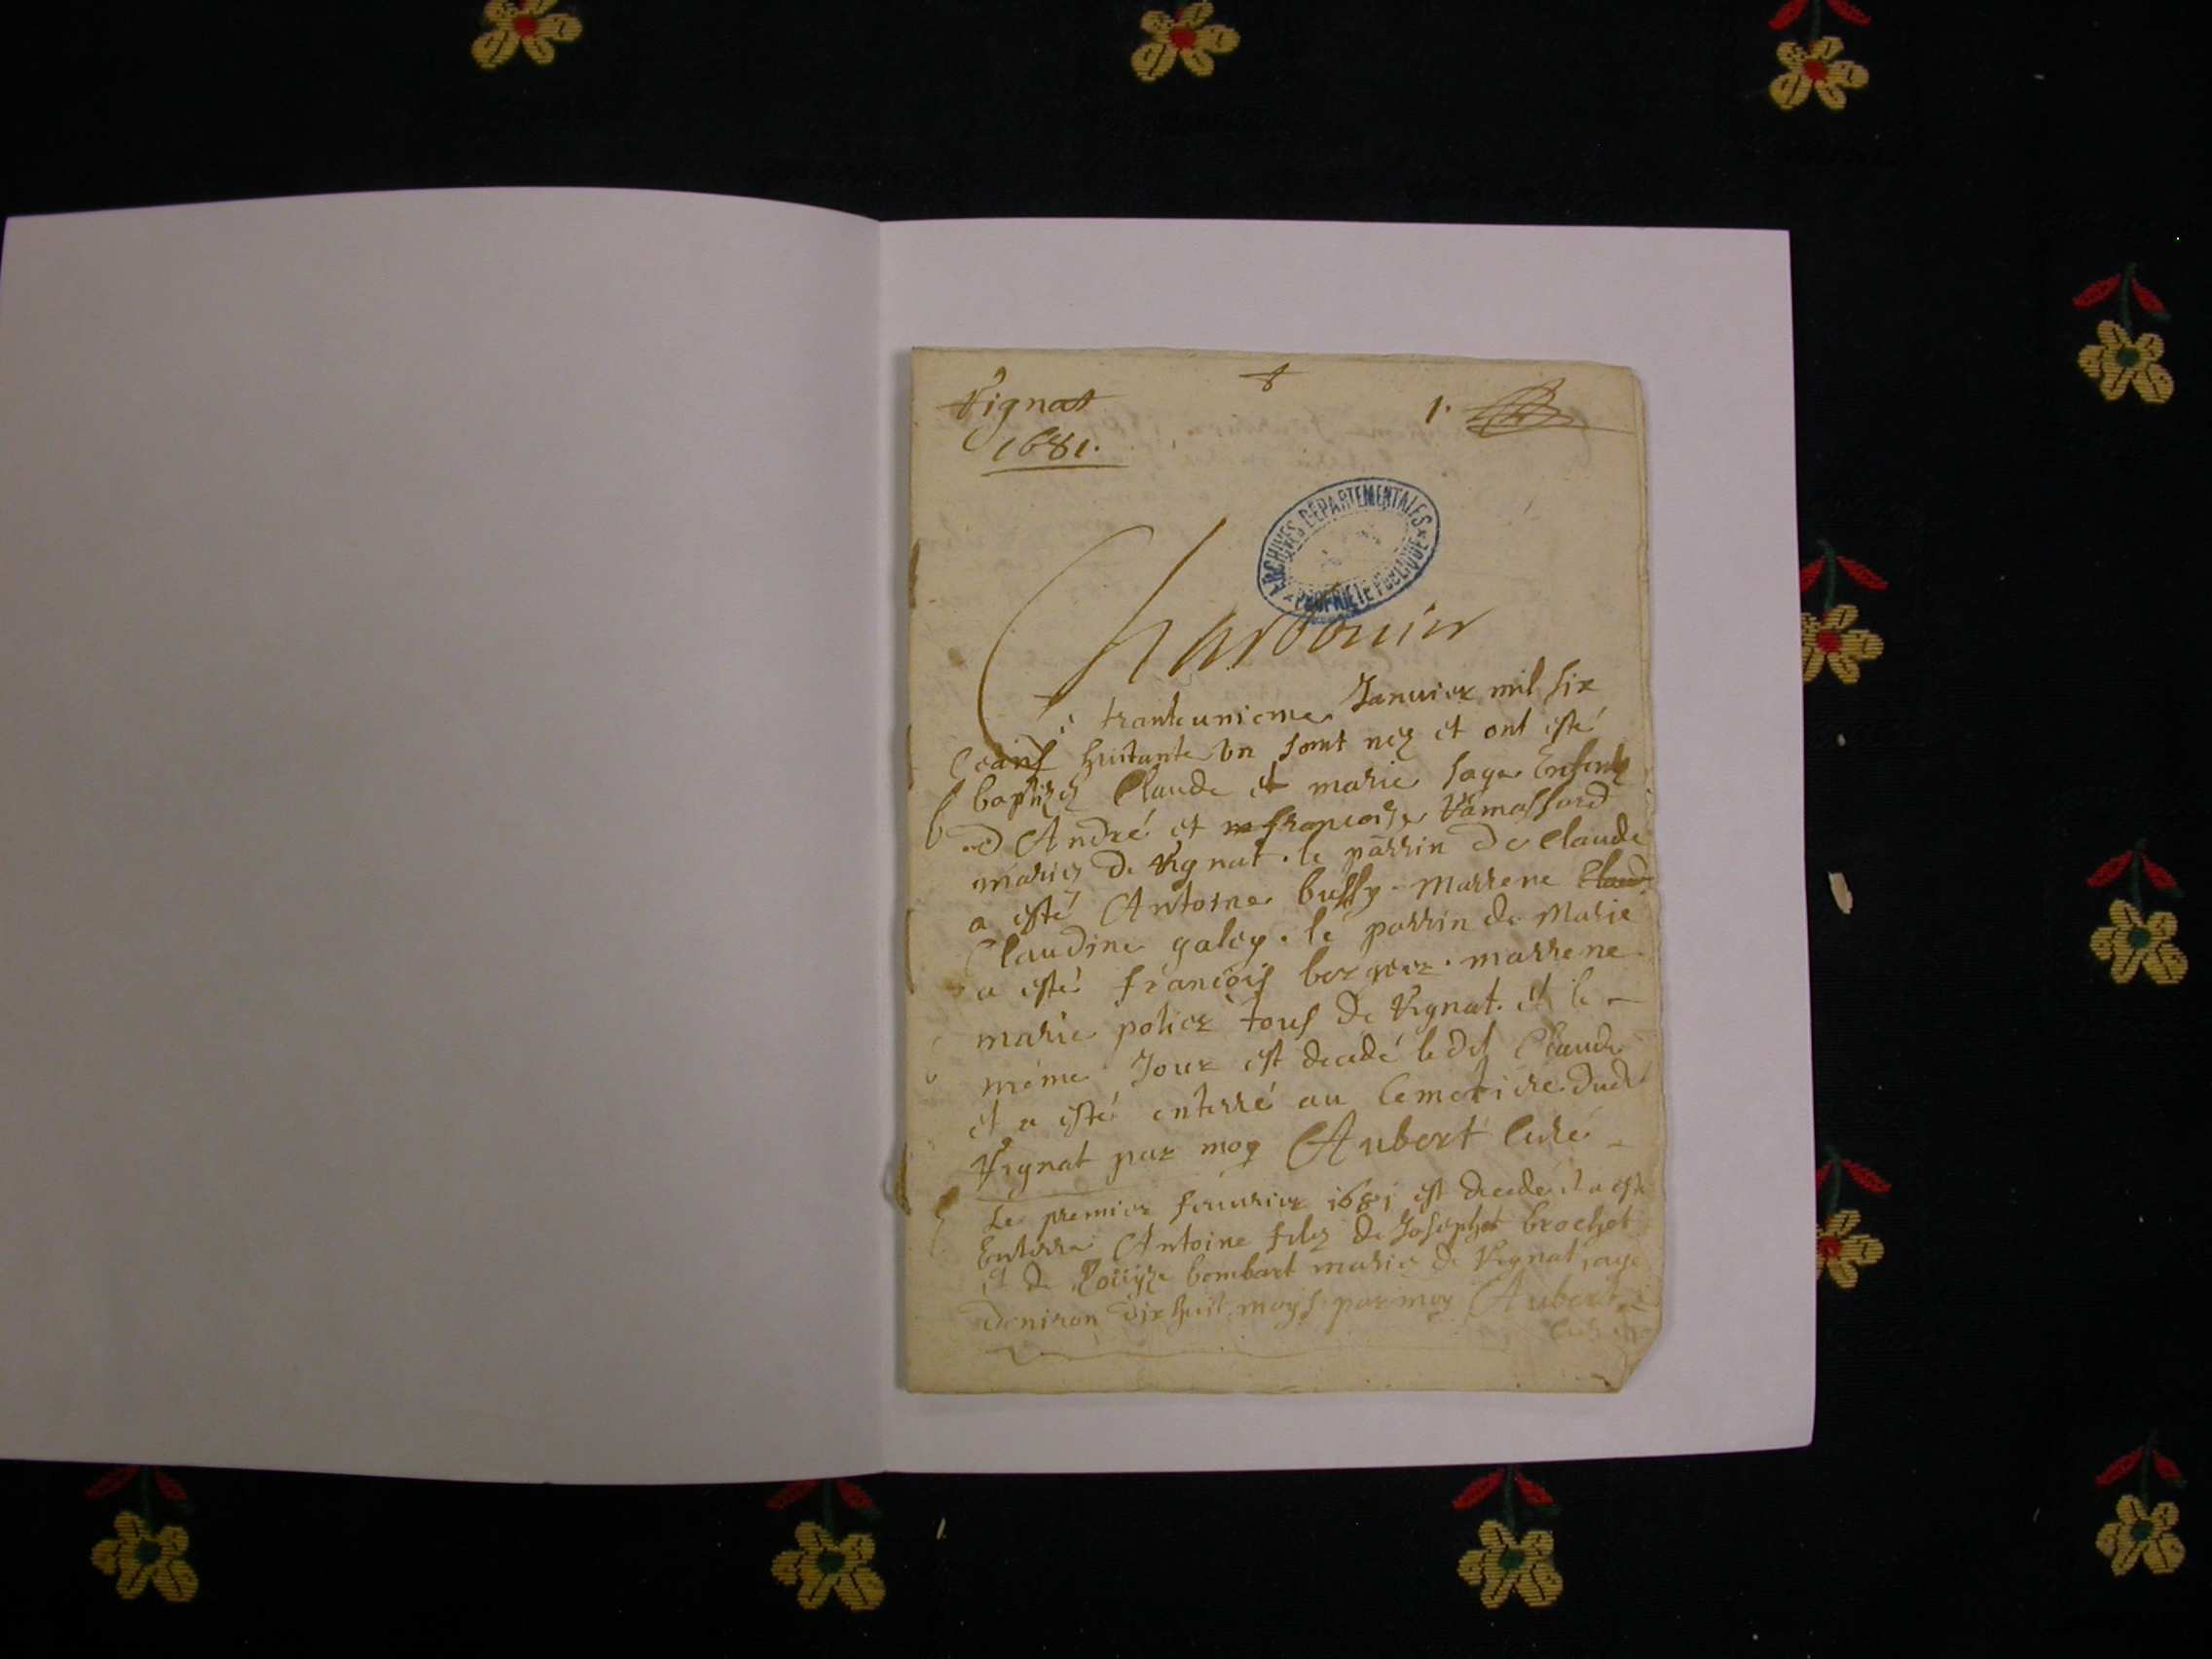 Vignat
1681.
1.
ARCHIVES DEPARTEMENTALES
PROPRIETE PUBLIQUE
Charbonier
tranteunieme Janvier mil six
huitante un sont nez et ont esté
baptizez Claude et marie sage Enfents
d André et francoise
mariez de Vignat. le parrin de Claude
a esté Antoine bussy. Marrene Claud
Claudine galey. le parrin de Marie
a esté francois berger. marrene
marie polier tous de Vignat. et le
méme Jour est decedé le dit Claude
et a esté enterré au Cemetiere dudt
Vignat par moy Aubert Curé
Le premier feuvrier 1681 est decedé et a esté
Enterré Antoine filz de Josephet brochet
et de Loüyze bombart mariez de Vignat, agé
denviron dix huit moys par moy Aubert
Curé